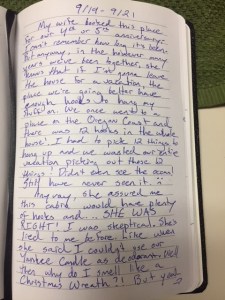 9/19 - 9/21
My wife booked this place
for our 4th or 5th anniversary.
I can't remember how big it's been
but anyway, in the bazillion
years we've been together, she
knows that if I'm gonna leave
the house for a vacation, the
place we're going better have
enough hooks to hang my
stuff on. We once went to a
place on the Oregon Coast and
there was 12 hooks in the whole
house! I had to pick 12 things to
hang up and we wasted our entire
vacation picking out those 12
things! Didn't even see the ocean!
Still have never seen it.
Anyway, she assured me
this cabin would have plenty
of hooks and... SHE WAS
RIGHT! I was skeptical. She's
lied to me before. Like when
she said I couldn't use our
Yankee Candle as deodorant. Well
then why do I smell like a
Christmas Wreath?! But yeah